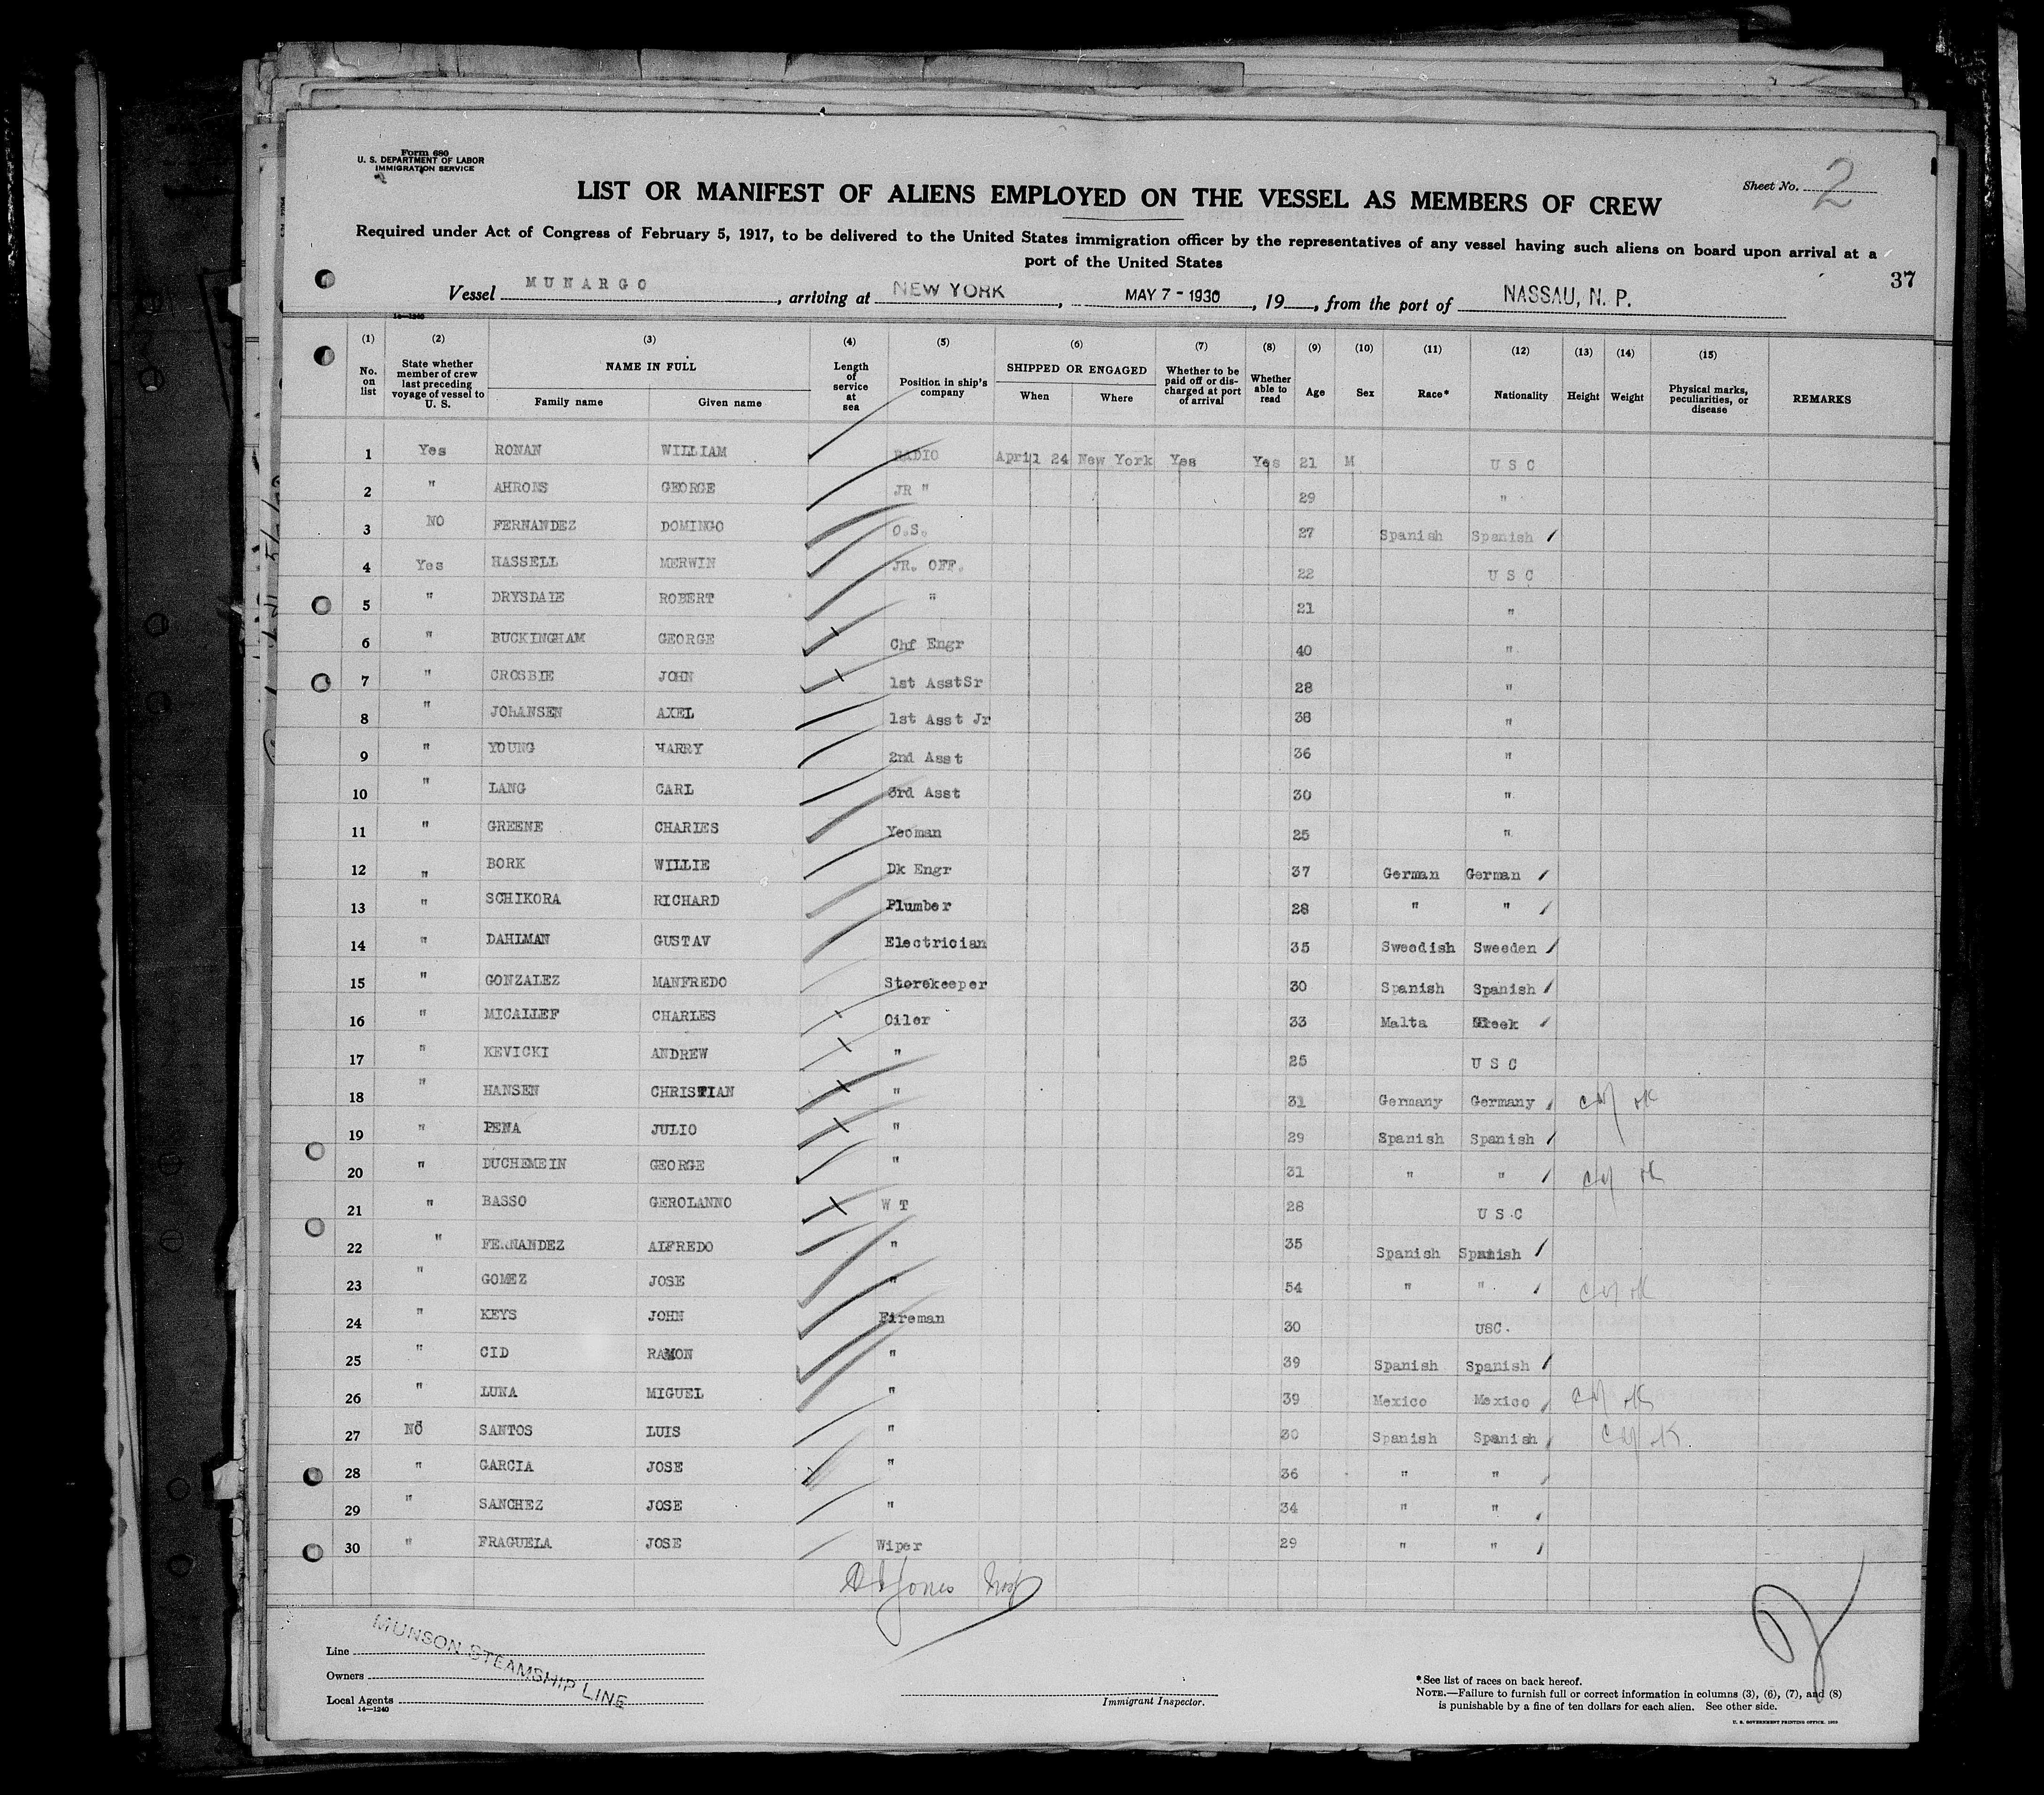 Form 680
U. S. DEPARTMENT OF LABOR
IMMIGRATION SERVICE
Sheet No. 2
LIST OR MANIFEST OF ALIENS EMPLOYED ON THE VESSEL AS MEMBERS OF CREW
Required under Act of Congress of February 5, 1917, to be delivered to the United States immigration officer by the representatives of any vessel having such aliens on board upon arrival at a
port of the United States
37
Vessel MUNARGO, arriving at NEW YORK, MAY 7 - 1930, 19, from the port of NASSAU, N. P.
14—1240
(1) (2) (3) (4) (5) (6) (7) (8) (9) (10) (11) (12) (13) (14) (15)
No. on list State whether member of crew last preceding voyage of vessel to U. S. NAME IN FULL Family name Given name Length of service at sea Position in ship's company SHIPPED OR ENGAGED When Where Whether to be paid off or discharged at port of arrival Whether able to read Age Sex Race* Nationality Height Weight Physical marks, peculiarities, or disease REMARKS
1 Yes RONAN WILLIAM RADIO April 24 New York Yes Yes 21 M U S C
2 " AHRONS GEORGE JR " 29 "
3 NO FERNANDEZ DOMINGO O.S. 27 Spanish Spanish
4 Yes HASSELL MERWIN JR. OFF. 22 U S C
5 " DRYSDALE ROBERT " 21 "
6 " BUCKINGHAM GEORGE Chf Engr 40 "
7 " CROSBIE JOHN 1st AsstSr 28 "
8 " JOHANSEN AXEL 1st Asst Jr 38 "
9 " YOUNG HARRY 2nd Asst 36 "
10 " LANG CARL 3rd Asst 30 "
11 " GREENE CHARLES Yeoman 25 "
12 " BORK WILLIE Dk Engr 37 German German
13 " SCHIKORA RICHARD Plumber 28 " "
14 " DAHLMAN GUSTAV Electrician 35 Swedish Sweeden
15 " GONZALEZ MANFREDO Storekeeper 30 Spanish Spanish
16 " MICALLEF CHARLES Oiler 33 Malta Greek
17 " KEVICKI ANDREW " 25 U S C
18 " HANSEN CHRISTIAN " 31 Germany Germany ok
19 " PENA JULIO " 29 Spanish Spanish
20 " DUCHEMEIN GEORGE " 31 " " ok
21 " BASSO GEROLANNO W T 28 U S C
22 " FERNANDEZ ALFREDO " 35 Spanish Spanish
23 " GOMEZ JOSE " 54 " " ok
24 " KEYS JOHN Fireman 30 USC.
25 " CID RAMON " 39 Spanish Spanish
26 " LUNA MIGUEL " 39 Mexico Mexico ok
27 NO SANTOS LUIS " 30 Spanish Spanish ok
28 " GARCIA JOSE " 36 " "
29 " SANCHEZ JOSE " 34 " "
30 " FRAGUELA JOSE Wiper 29 " "
Jones
Line
MUNSON STEAMSHIP LINE
Owners
Local Agents
14—1240
Immigrant Inspector.
*See list of races on back hereof.
NOTE.—Failure to furnish full or correct information in columns (3), (6), (7), and (8)
is punishable by a fine of ten dollars for each alien. See other side.